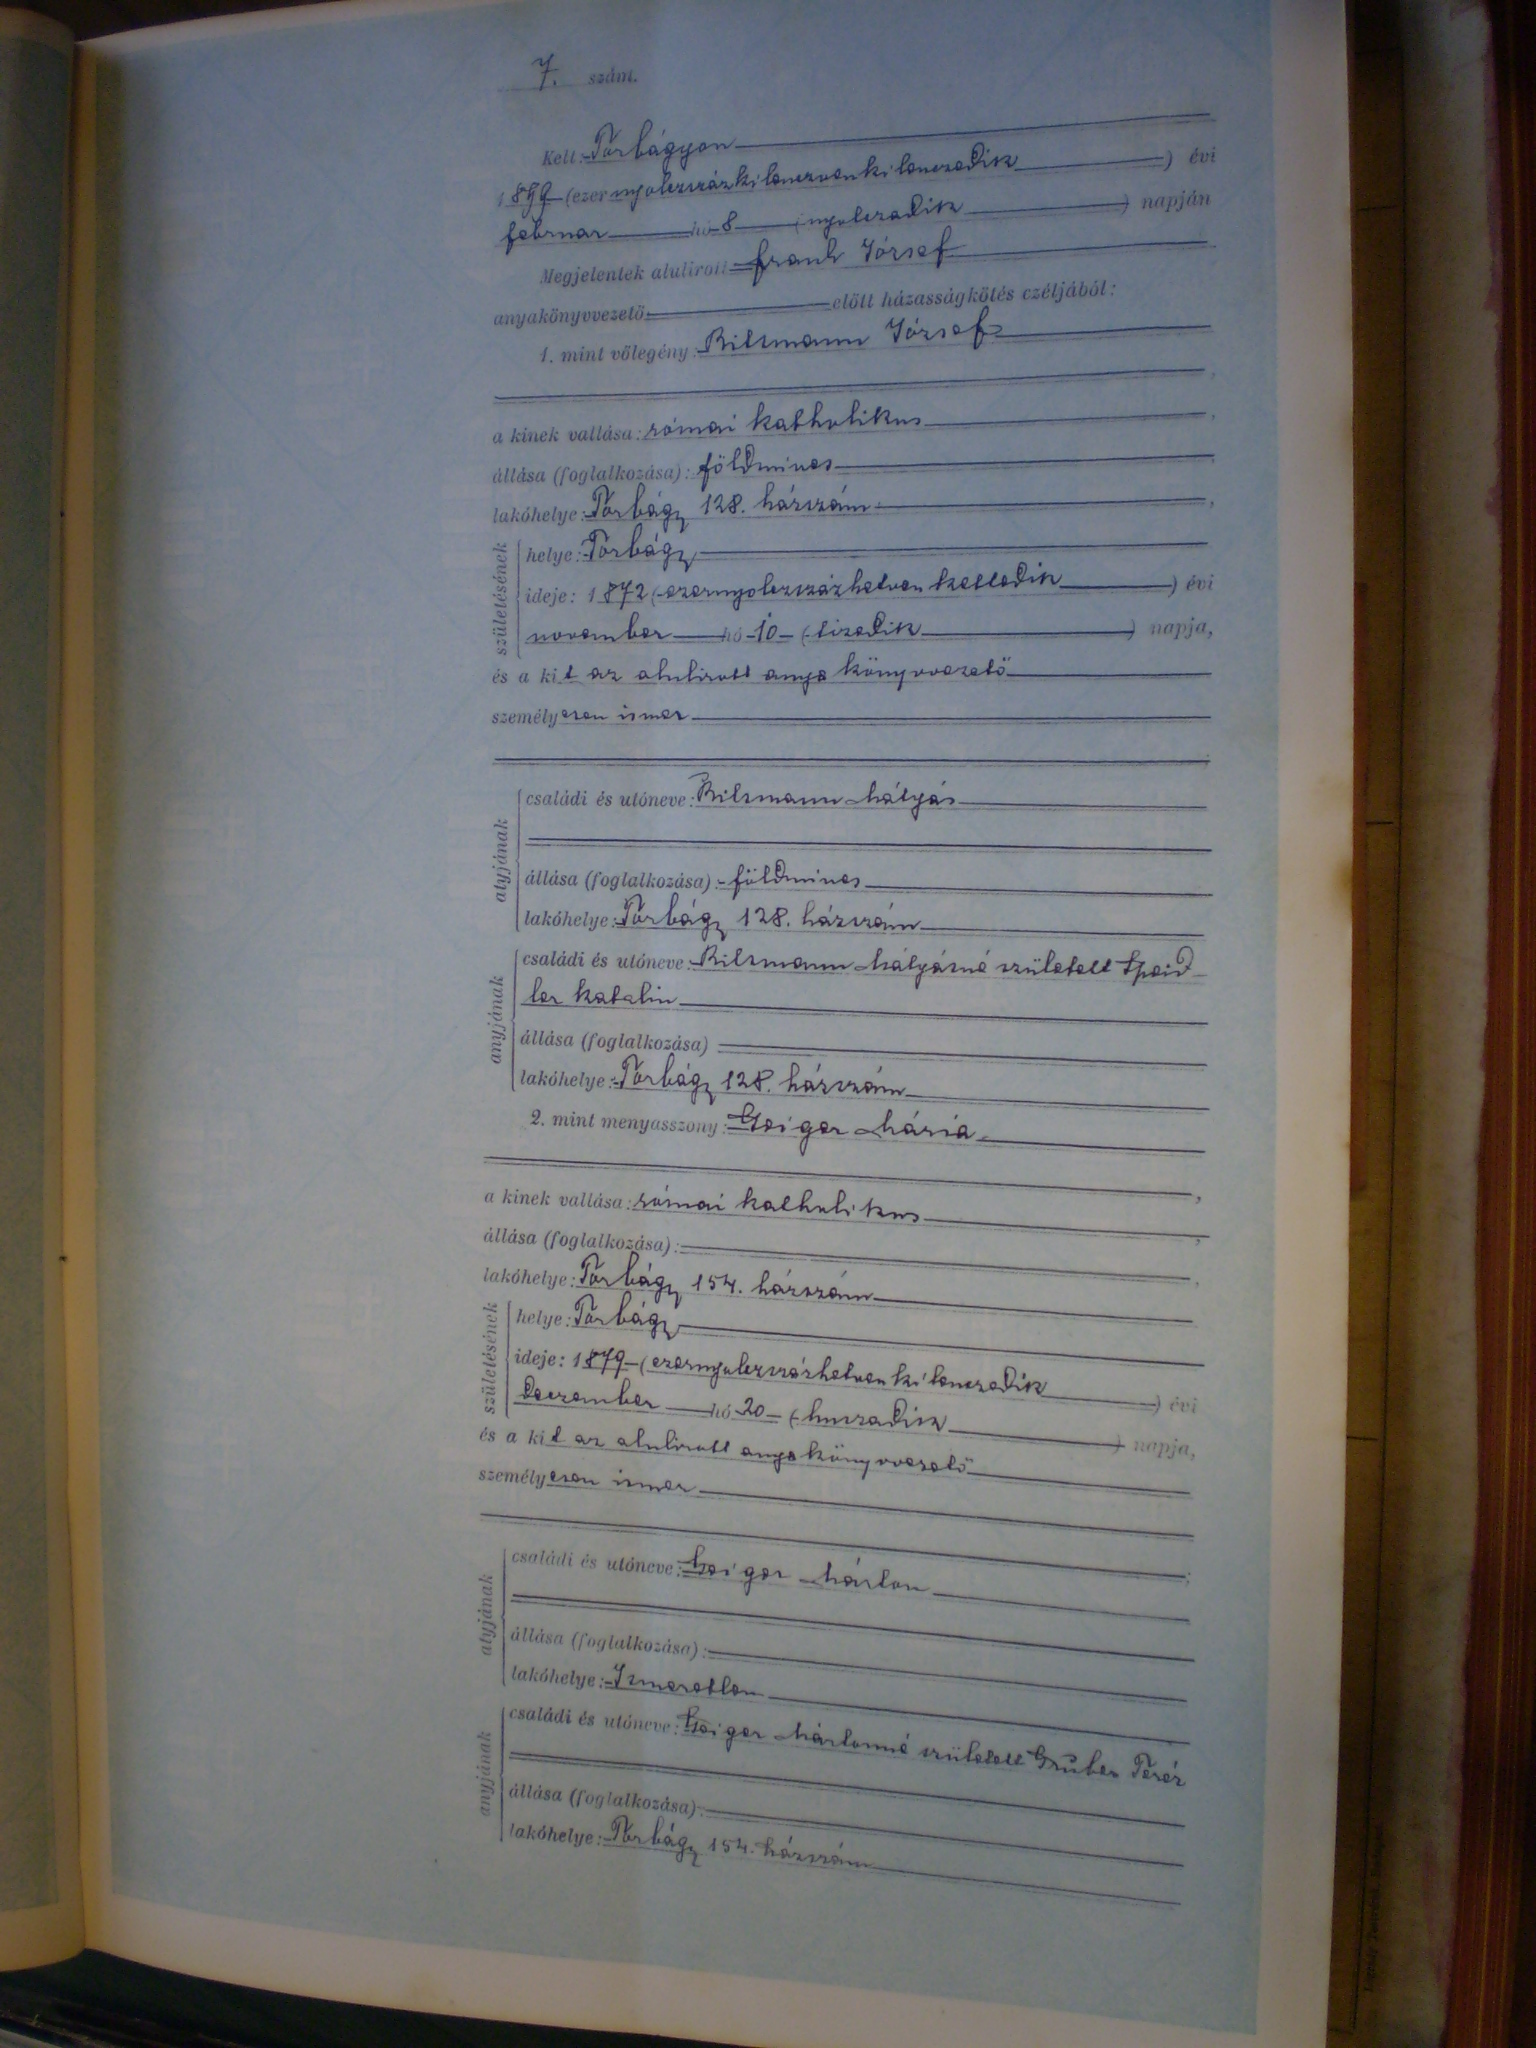 7. szám.
Kelt: Törbágyon
1899 (ezer nyolczszázkilenczvenkilenczedik) évi
február hó 8 (nyolczadik) napján
Megjelentek alulirott Frank József
anyakönyvvezető előtt házasságkötés czéljából:
1. mint vőlegény: Bilzmann József
a kinek vallása: római katholikus,
állása (foglalkozása): földmives,
lakóhelye: Törbágy 128. házszám,
születésének
helye: Törbágy
ideje: 1872 (ezernyolczszázhetvenkettedik) évi
november hó 10 (tizedik) napja,
és a kit az alulirott anyakönyvvezető
személyesen ismer
atyjának
családi és utóneve: Bilzmann Mátyás
állása (foglalkozása): földmives
lakóhelye: Törbágy 128. házszám
anyjának
családi és utóneve: Bilzmann Mátyásné született Speid-
ler Katalin
állása (foglalkozása)
lakóhelye: Törbágy 128. házszám
2. mint menyasszony: Geiger Mária
a kinek vallása: római katholikus,
állása (foglalkozása):
lakóhelye: Törbágy 154. házszám,
születésének
helye: Törbágy
ideje: 1879 (ezernyolczszázhetvenkilenczedik) évi
deczember hó 20 (huszadik) napja,
és a kit az alulirott anyakönyvvezető
személyesen ismer
atyjának
családi és utóneve: Geiger Márton
állása (foglalkozása):
lakóhelye: Ismeretlen
anyjának
családi és utóneve: Geiger Mártonné született Gruber Teréz
állása (foglalkozása):
lakóhelye: Törbágy 154. házszám